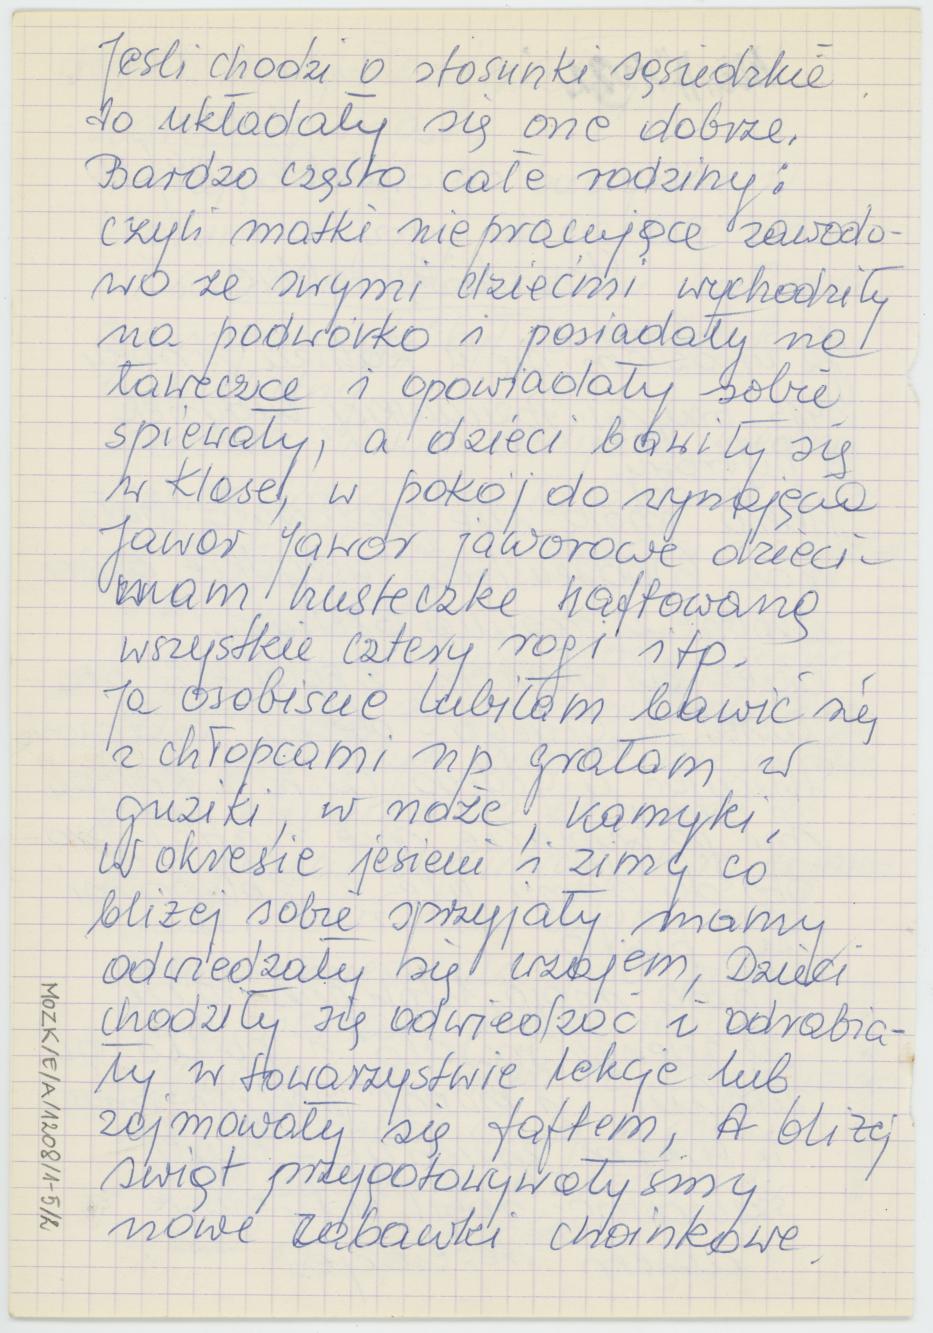 Jeśli chodzi o stosunki sąsiedzkie
to układały się one dobrze.
Bardzo często całe rodziny;
czyli matki niepracujące zawodo-
wo ze swymi dziećmi wychodziły
na podwórko i posiadały na
ławeczce i opowiadały sobie
śpiewały, a dzieci bawiły się
w klasę, w pokój do wynajęcia
Jawor Jawor jaworowe dzieci-
mam husteczke haftowaną
wszystkie cztery rogi itp.
Ja osobiście lubiłam bawić się
z chłopcami np grałam w
guziki, w noże, kamyki,
W okresie jesieni i zimy co
bliżej sobie sprzyjały mamy
odwiedzały się wzajem, Dzieci
chodziły się odwiedzać i odrabia-
ły w towarzystwie lekcje lub
zajmowały się faftem, A bliżej
świąt przygotowywałyśmy
nowe zabawki choinkowe
MOZK/E/A/1208/1-5/2